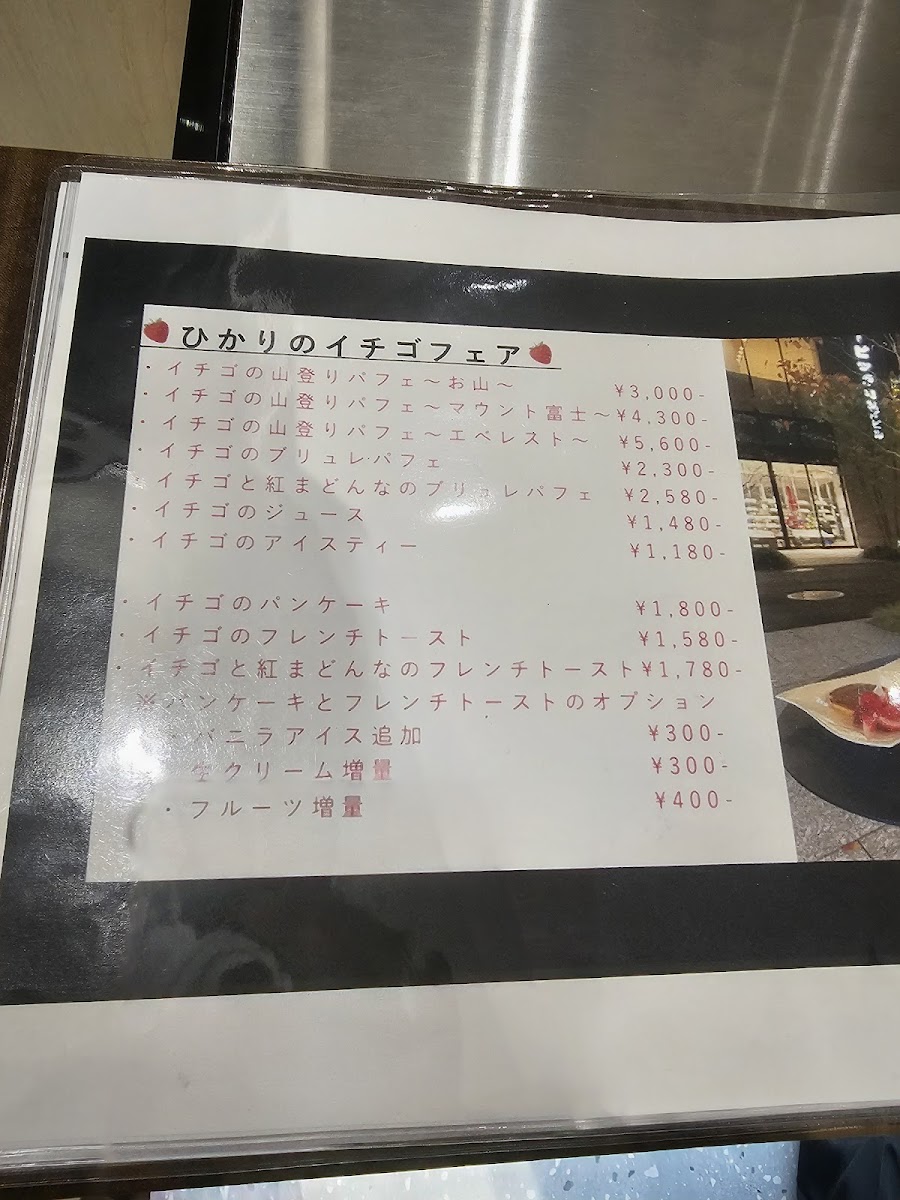 ひかりのイチゴフェア
・イチゴの山登りパフェ〜お山〜 ¥3,000-
・イチゴの山登りパフェ〜マウント富士〜 ¥4,300-
・イチゴの山登りパフェ〜エベレスト〜 ¥5,600-
・イチゴのブリュレパフェ ¥2,300-
・イチゴと紅まどんなのブリュレパフェ ¥2,580-
・イチゴのジュース ¥1,480-
・イチゴのアイスティー ¥1,180-
・イチゴのパンケーキ ¥1,800-
・イチゴのフレンチトースト ¥1,580-
・イチゴと紅まどんなのフレンチトースト ¥1,780-
※パンケーキとフレンチトーストのオプション
・バニラアイス追加 ¥300-
生クリーム増量 ¥300-
・フルーツ増量 ¥400-